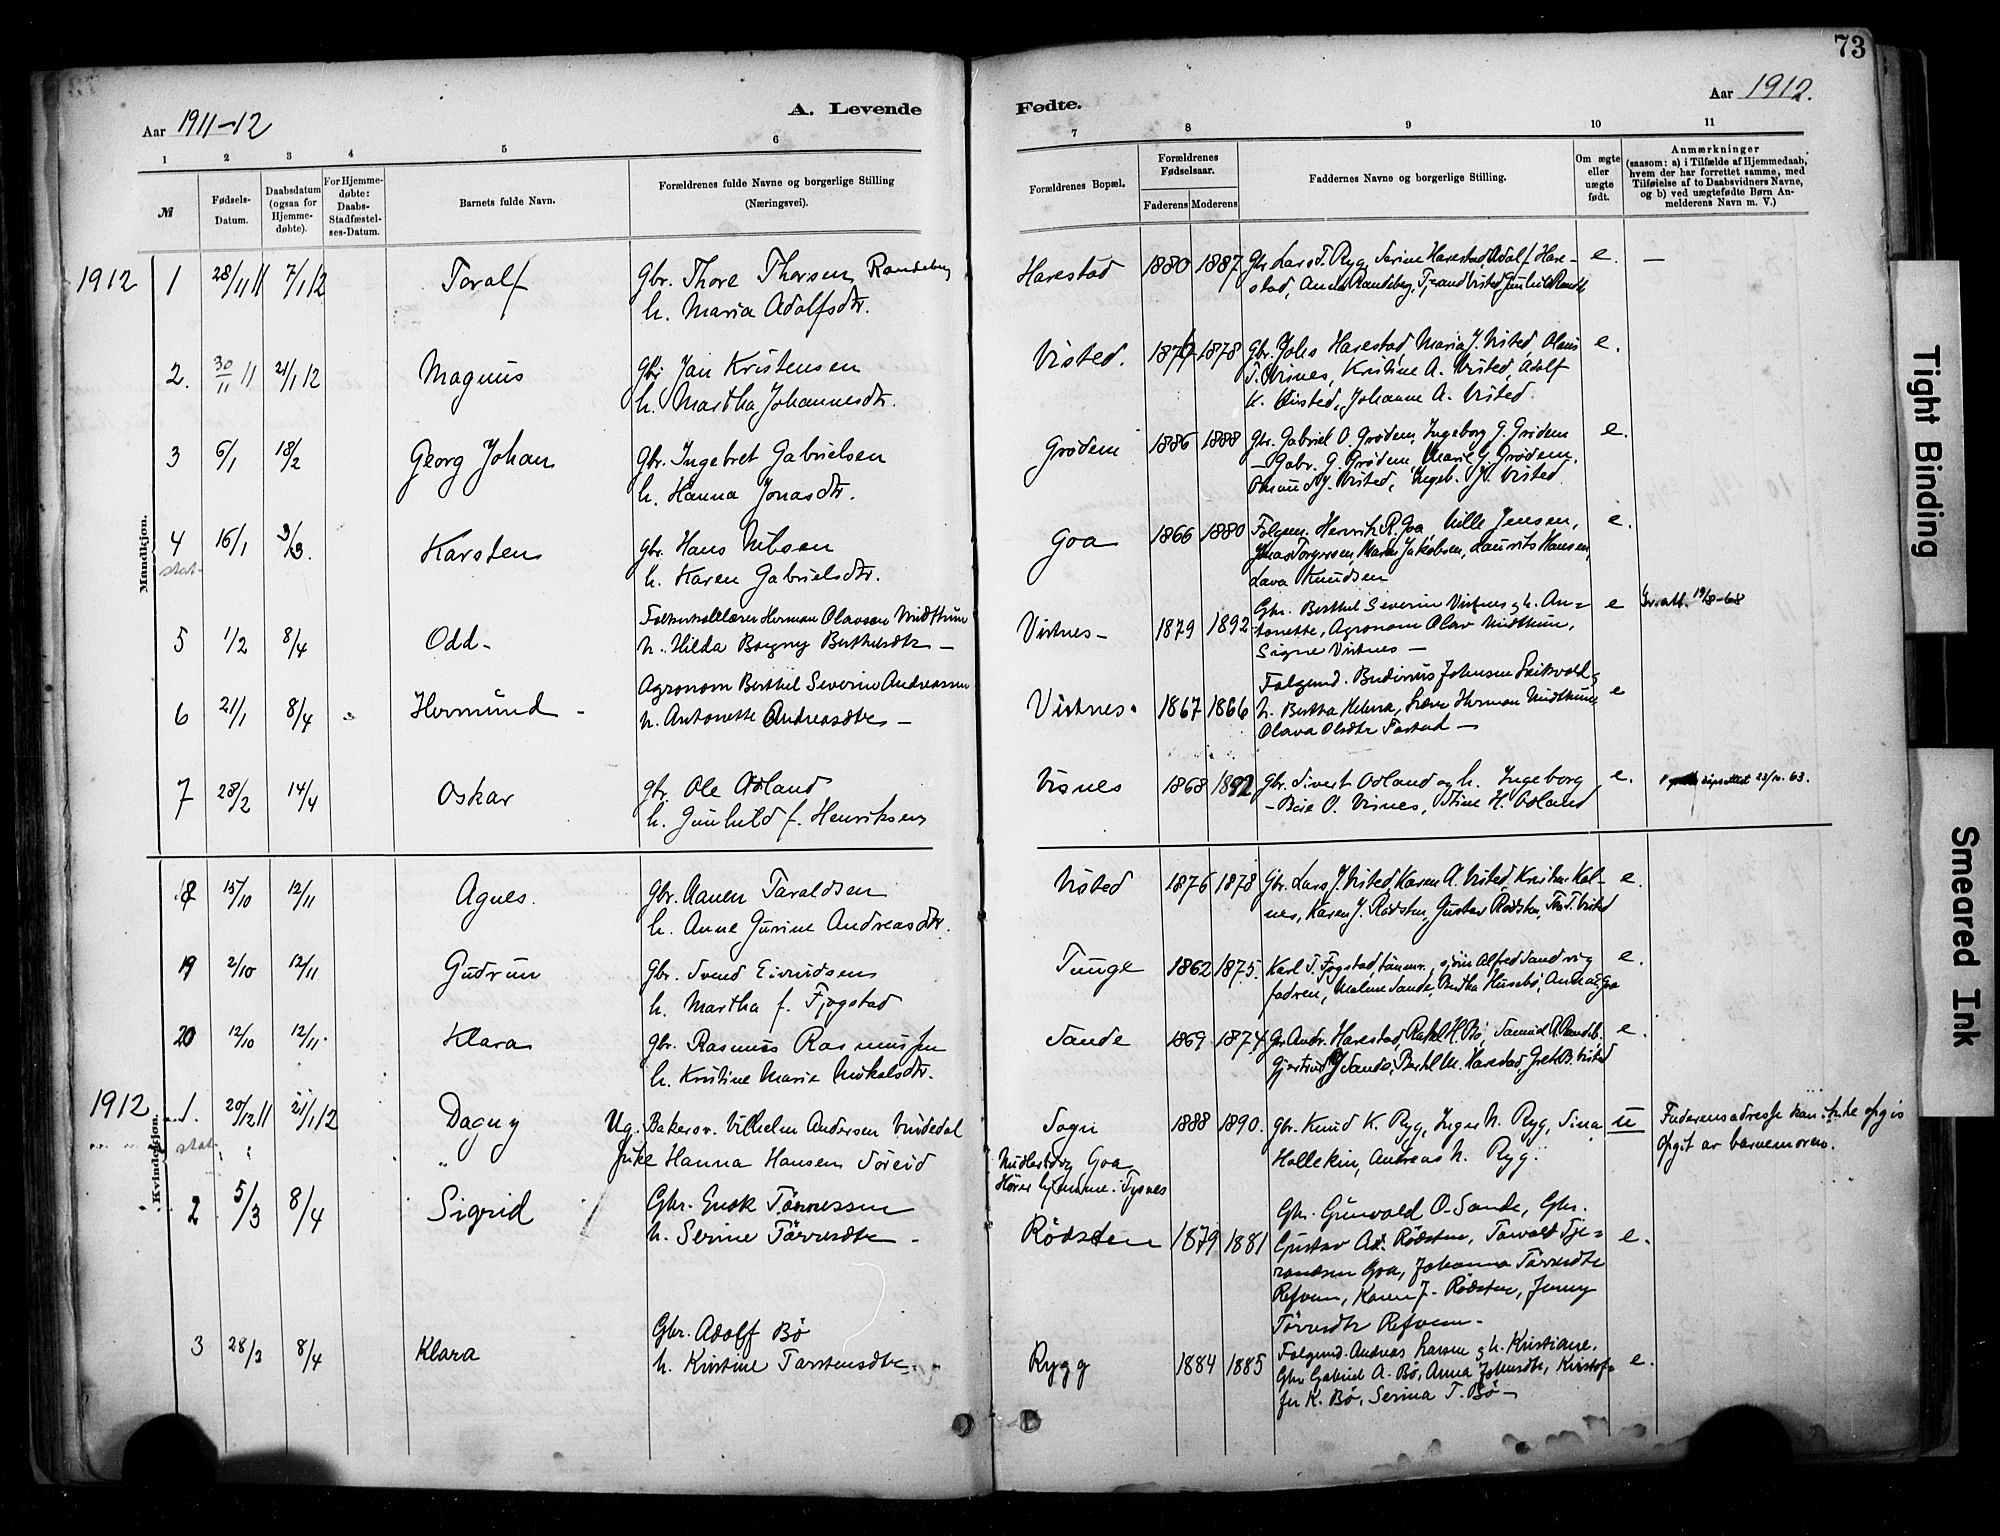 73
Aar 1911-12
A. Levende
Fødte.
Aar 1912.
1 2 3 4 5 6 7 8 9 10 11
№
Fødsels-Datum.
Daabsdatum (ogsaa for Hjemme-døbte).
For Hjemme-døbte: Daabs-Stadfæstel-ses-Datum.
Barnets fulde Navn.
Forældrenes fulde Navne og borgerlige Stilling (Næringsvei).
Forældrenes Bopæl.
Forældrenes Fødselsaar.
Faderens Moderens
Faddernes Navne og borgerlige Stilling.
Om ægte eller uægte født.
Anmærkninger
(saasom: a) i Tilfælde af Hjemmedaab, hvem der har forrettet samme, med Tilføielse af to Daabsvidners Navne, og b) ved uægtefødte Børn An-melderens Navn m. V.)
Mandkjøn.
1912 1 28/11 11 7/1 12 Toralf
Gbr. Thore Thorsen Randeberg
h. Maria Adolfsdtr.
Harestad 1880 1887 Gbr Lars T. Ryg, Serine Harestad, Adolf Hare-
stad, Anna Randeberg, Tjerand Visted, e. —
2. 30/11 11 21/1 12 Magnus
Gbr. Jan Kristensen
h. Martha Johannesdtr.
Visted. 1878 Gbr. Johs Harestad, Maria J. Visted, Olaus
T. Visnes, Kristine A. Visted, Adolf
K. Visted, Johanne A. Visted. e.
3 6/1 18/2 Georg Johan
Gbr. Ingebret Gabrielsen
h. Hanna Jonasdtr.
Grødem 1886 1888 Gbr. Gabriel O. Grødem, Ingeborg G. Grødem
— Gabr. G. Grødem, Marie G Grødem,
Omund J. Visted, Ingeb. J. Visted. e.
4 16/1 3/3. Karsten
stat-
Gbr. Hans Nilsen
h. Karen Gabrielsdtr.
Goa 1866 1880 Folgem. Henrik R. Goa, Mille Jensen,
Jonas Torgersen, Maren Jakobsen, Laurits Hansen,
Lava Knudsen e.
5 1/2 8/4 Odd -
Folkeskolelærer Herman Olavsen Midthun
h. Hilda Borgny Berthelsdtr —
Vistnes - 1879 1892 Gbr. Berthel Severin Vistnes og h. An=
tonette, Agronom Olav Midthun,
Signe Vistnes — e 19/8-68
6 21/1 8/4 Hermund -
Agronom Berthel Severin Andreassen
h. Antonette Andreasdtr —
Vistnes. 1867 1866 Folgemd. Johnsen
h. Bertha Helena, Lærer Herman Midthun,
Olava Olsdtr Tastad — e
7 28/2 14/4 Oskar
gbr. Ole Odland
h. Gunhild f. Henriksen
Visnes 1868 1892 gbr. Sivert Odland og h. Ingeborg
— O. Visnes, Stine H. Odland e. 22/10-63.
Kvindekjøn.
18 15/10 12/11 Agnes.
gbr. Aanen Taraldsen
h. Anne Gurine Andreasdtr.
Visted 1876 1878 Gbr. Lars J. Visted, Karen A. Visted, Kristine Kal-
nes, Karen J. Rødsten, Gustav Rødsten, T. Visted e.
19 2/10 12/11 Gudrun
Gbr. Svend Eivindsen
h. Martha f. Fjogstad
Tunge 1862 1875. Karl T. Fjogstad, tømmr., Alfred Sandvig
fadren, Malene Sande, Bertha Husebø, Goa e.
20 12/10 12/11. Klara
gbr. Rasmus Rasmussen
h. Kristine Marie Mikalsdtr.
Sande 1869 1874 Gbr Andr. Harestad, Rakel H. Bø, Samuel A. Randeb.
Gjertrud J Sande, Bertel M. Harestad, Gret B. Visted e.
1912 1. 20/12 11 21/1 12 Dagny
stat-
Ug. Bakersv. Vilhelm Andersen Vindedal
Pike Hanna Hansen Søreid
Sogn
Goa
Tysnes
1888 1890. Gbr. Knud K. Ryg, Inger N. Ryg, Sina
Hollekim, Andreas N. Ryg. u
Faderens adresse kan ikke opgis
opgit av barnemoren.
2 5/3 8/4 Sigrid
Gbr. Enok Tønnessen
h. Serine Tørresdtr -
Rødsten 1879 1881 Gbr. Grunvald O. Sande, Gbr.
Gustav Ad. Rødsten, Torvald Tje=
randsen Goa, Johanna Tørresdtr
Refvem, Karen J. Rødsten, Jenny
Tørresdtr Refvem. e.
3 28/3 8/4 Klara
Gbr. Adolf Bø
h. Kristine Torstensdtr.
Rygg 1884 1885 Folgemd. Andreas Larsen og h. Kristiane.
Gbr Gabriel A. Bø, Anna Johnsdtr, Kristof=
fer K. Bø, Serina T. Bø — e.
Tight Binding
Smeared Ink